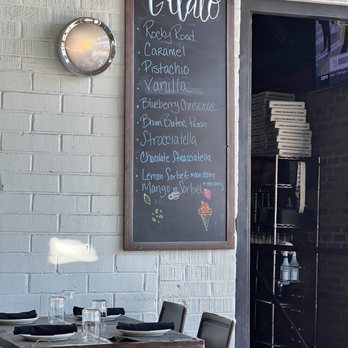 Gelato
Rocky Road
Caramel
Pistachio
Vanilla
Blueberry Cheesecake
Brown Butter Pecan
Stracciatella
Chocolate Stracciatella
Lemon Sorbet *non dairy
Mango Sorbet *non dairy